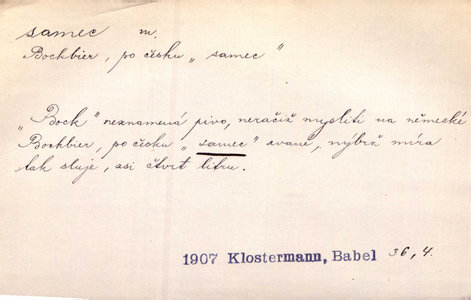 samec m.
Bockbier, po česku „samec"
„Bock" neznamená pivo, neračiž mysliti na německé
Bockbier, po česku „samec" zvané, nýbrž míra
tak sluje, asi čtvrt litru.
1907 Klostermann, Babel 36, 4.